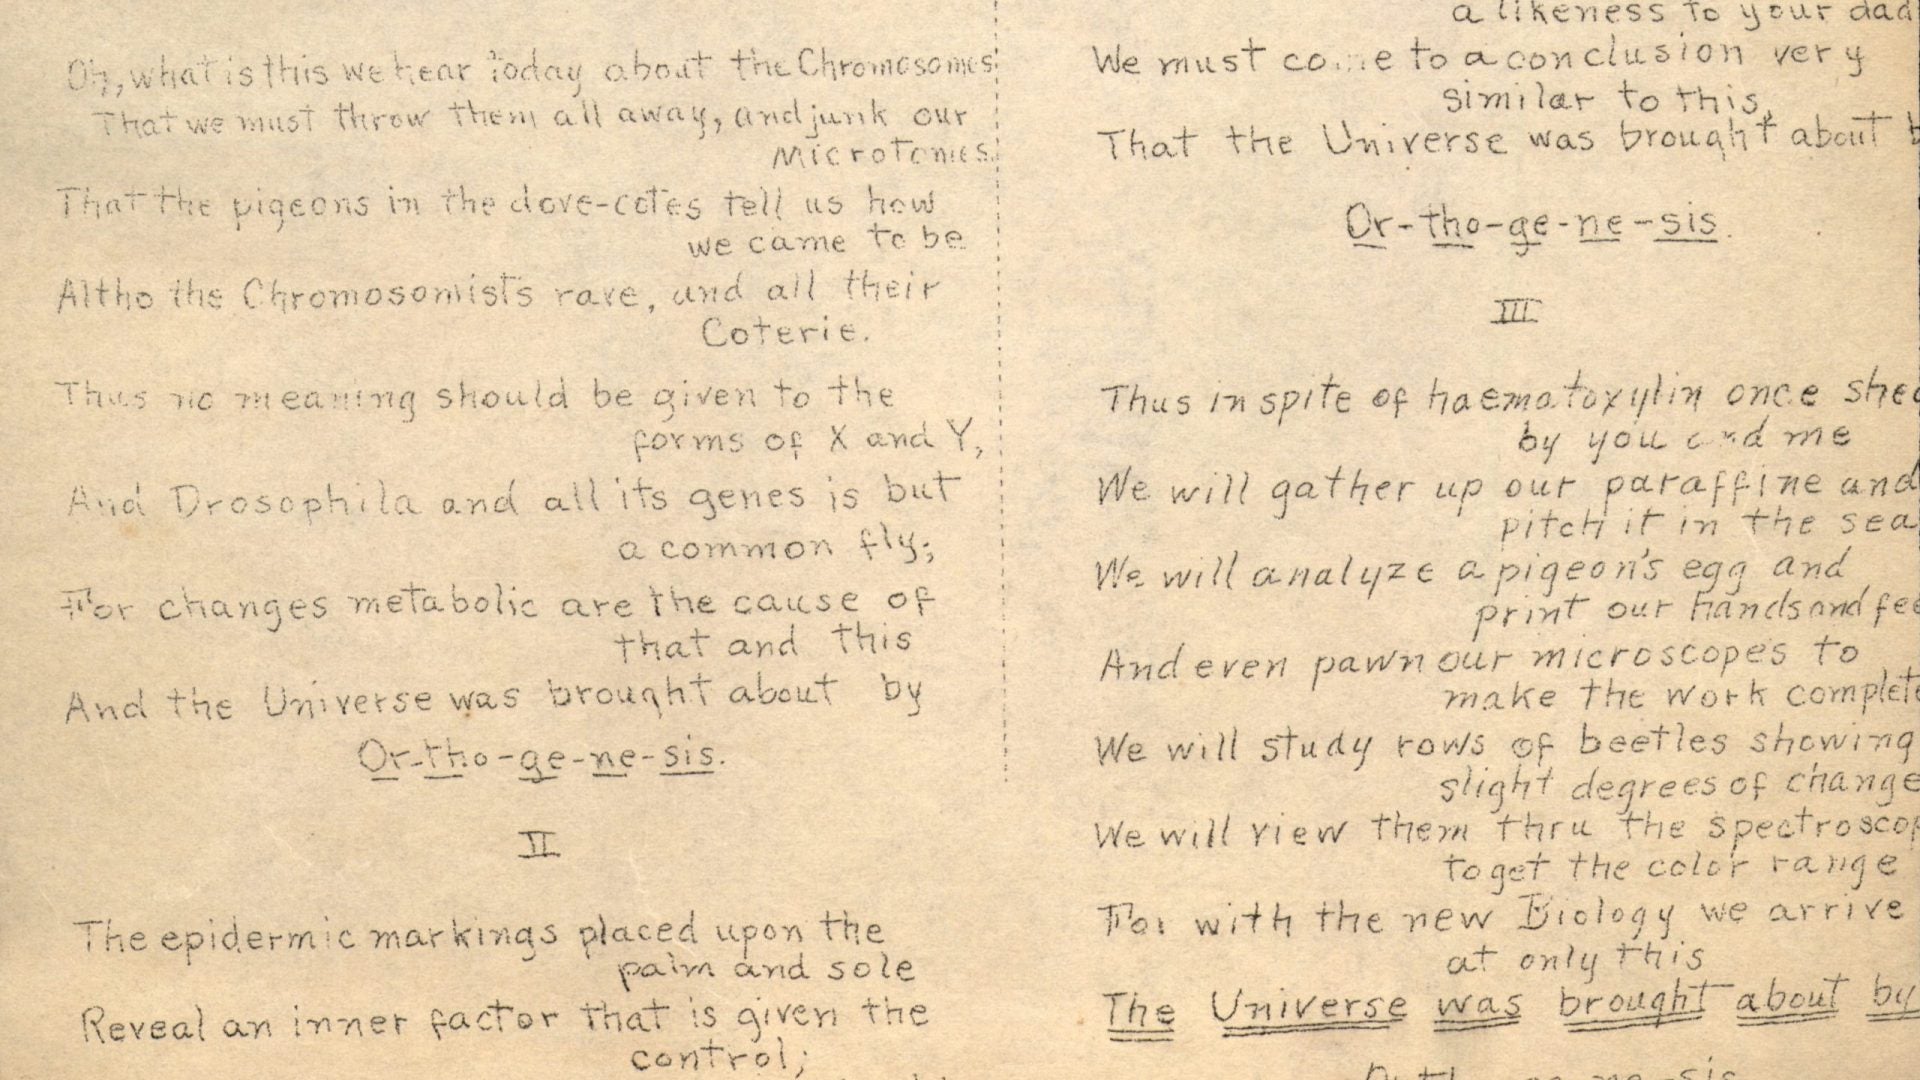 Oh, what is this we hear Today about the Chromosomes
That we must throw them all away, and junk our
microtomes.
That the pigeons in the dove-cotes tell us how
we came to be
Altho the Chromosomists rave, and all their
Coterie.
Thus no meaning should be given to the
forms of X and Y,
And Drosophila and all its genes is but
a common fly;
For changes metabolic are the cause of
that and this
And the Universe was brought about by
Or-tho-ge-ne-sis.
II
The epidermic markings placed upon the
palm and sole
Reveal an inner factor that is given the
control;
a likeness to your dad
We must come to a conclusion very
similar to this,
That the Universe was brought about
Or-tho-ge-ne-sis.
III
Thus in spite of haematoxylin once
by you and me
We will gather up our paraffine and
pitch it in the sea
We will analyze a pigeon's egg and
print our hands and
And even pawn our microscopes to
make the work
We will study rows of beetles showing
slight degrees of change
We will view them thru the
to get the color range
For with the new Biology we arrive
at only this
The Universe was brought about by